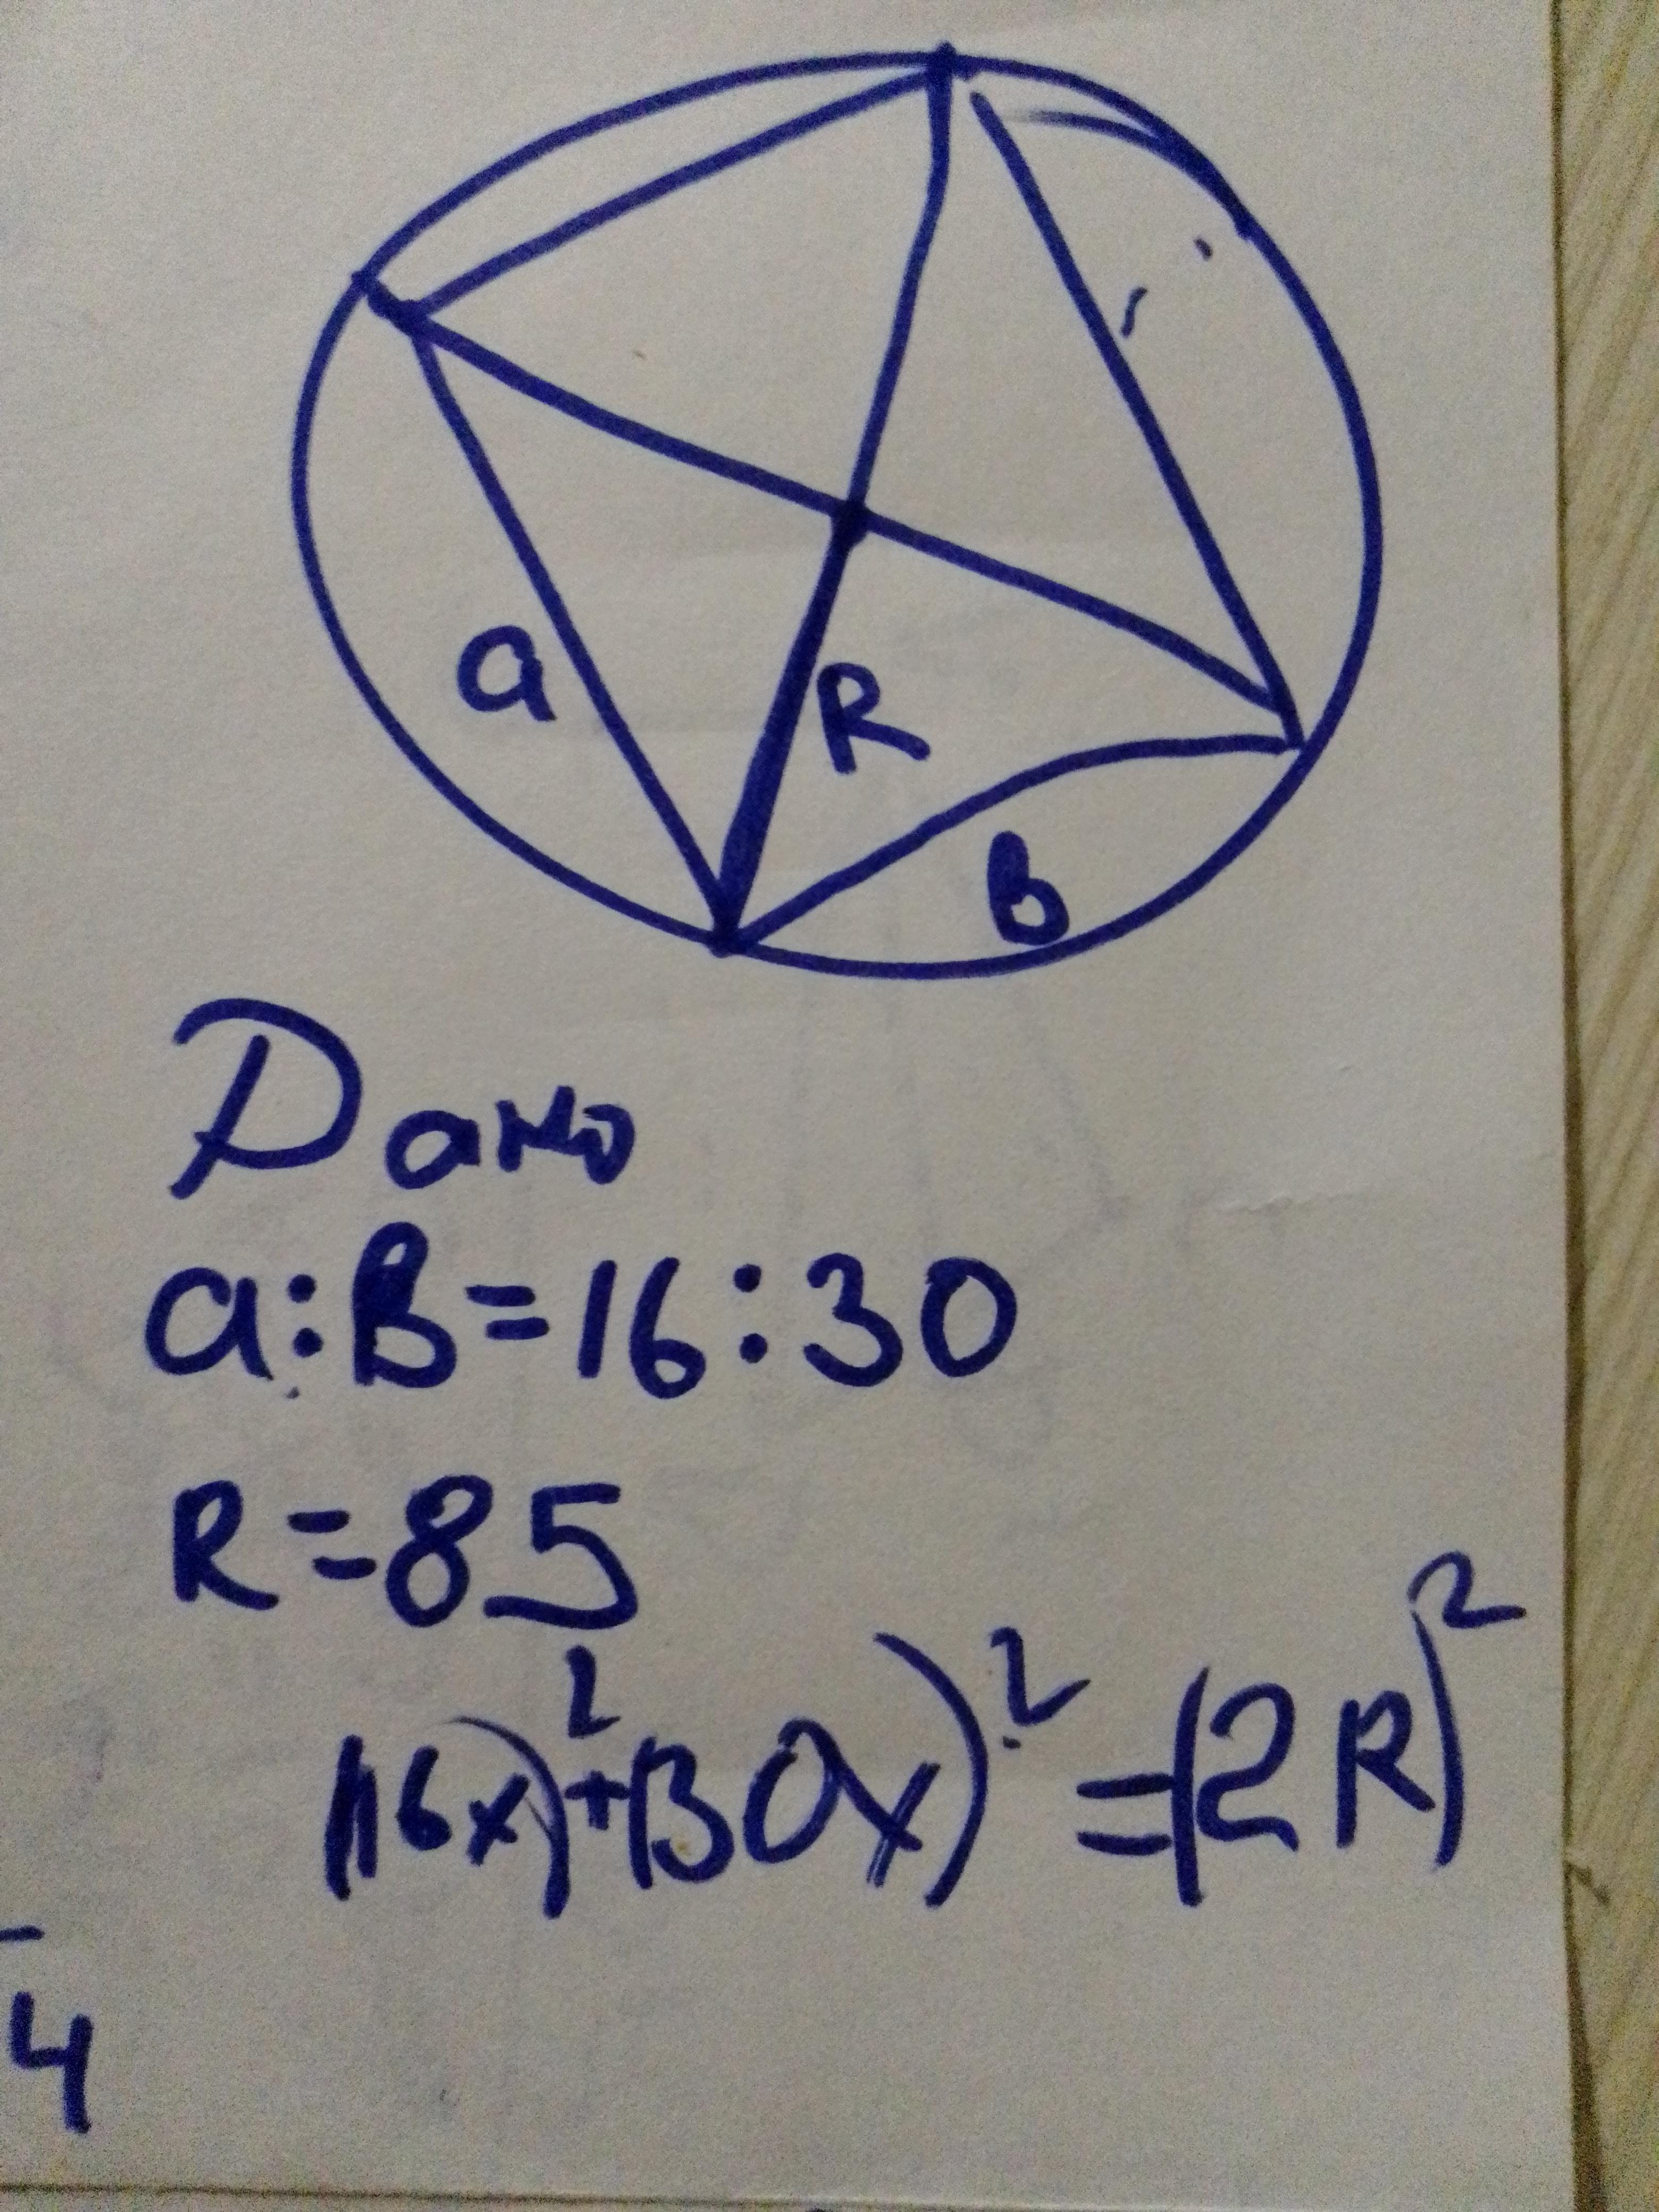 a
R
в
Дано
a:B=16:30
R=85
(16x)²+(30x)²=(2R)²
4